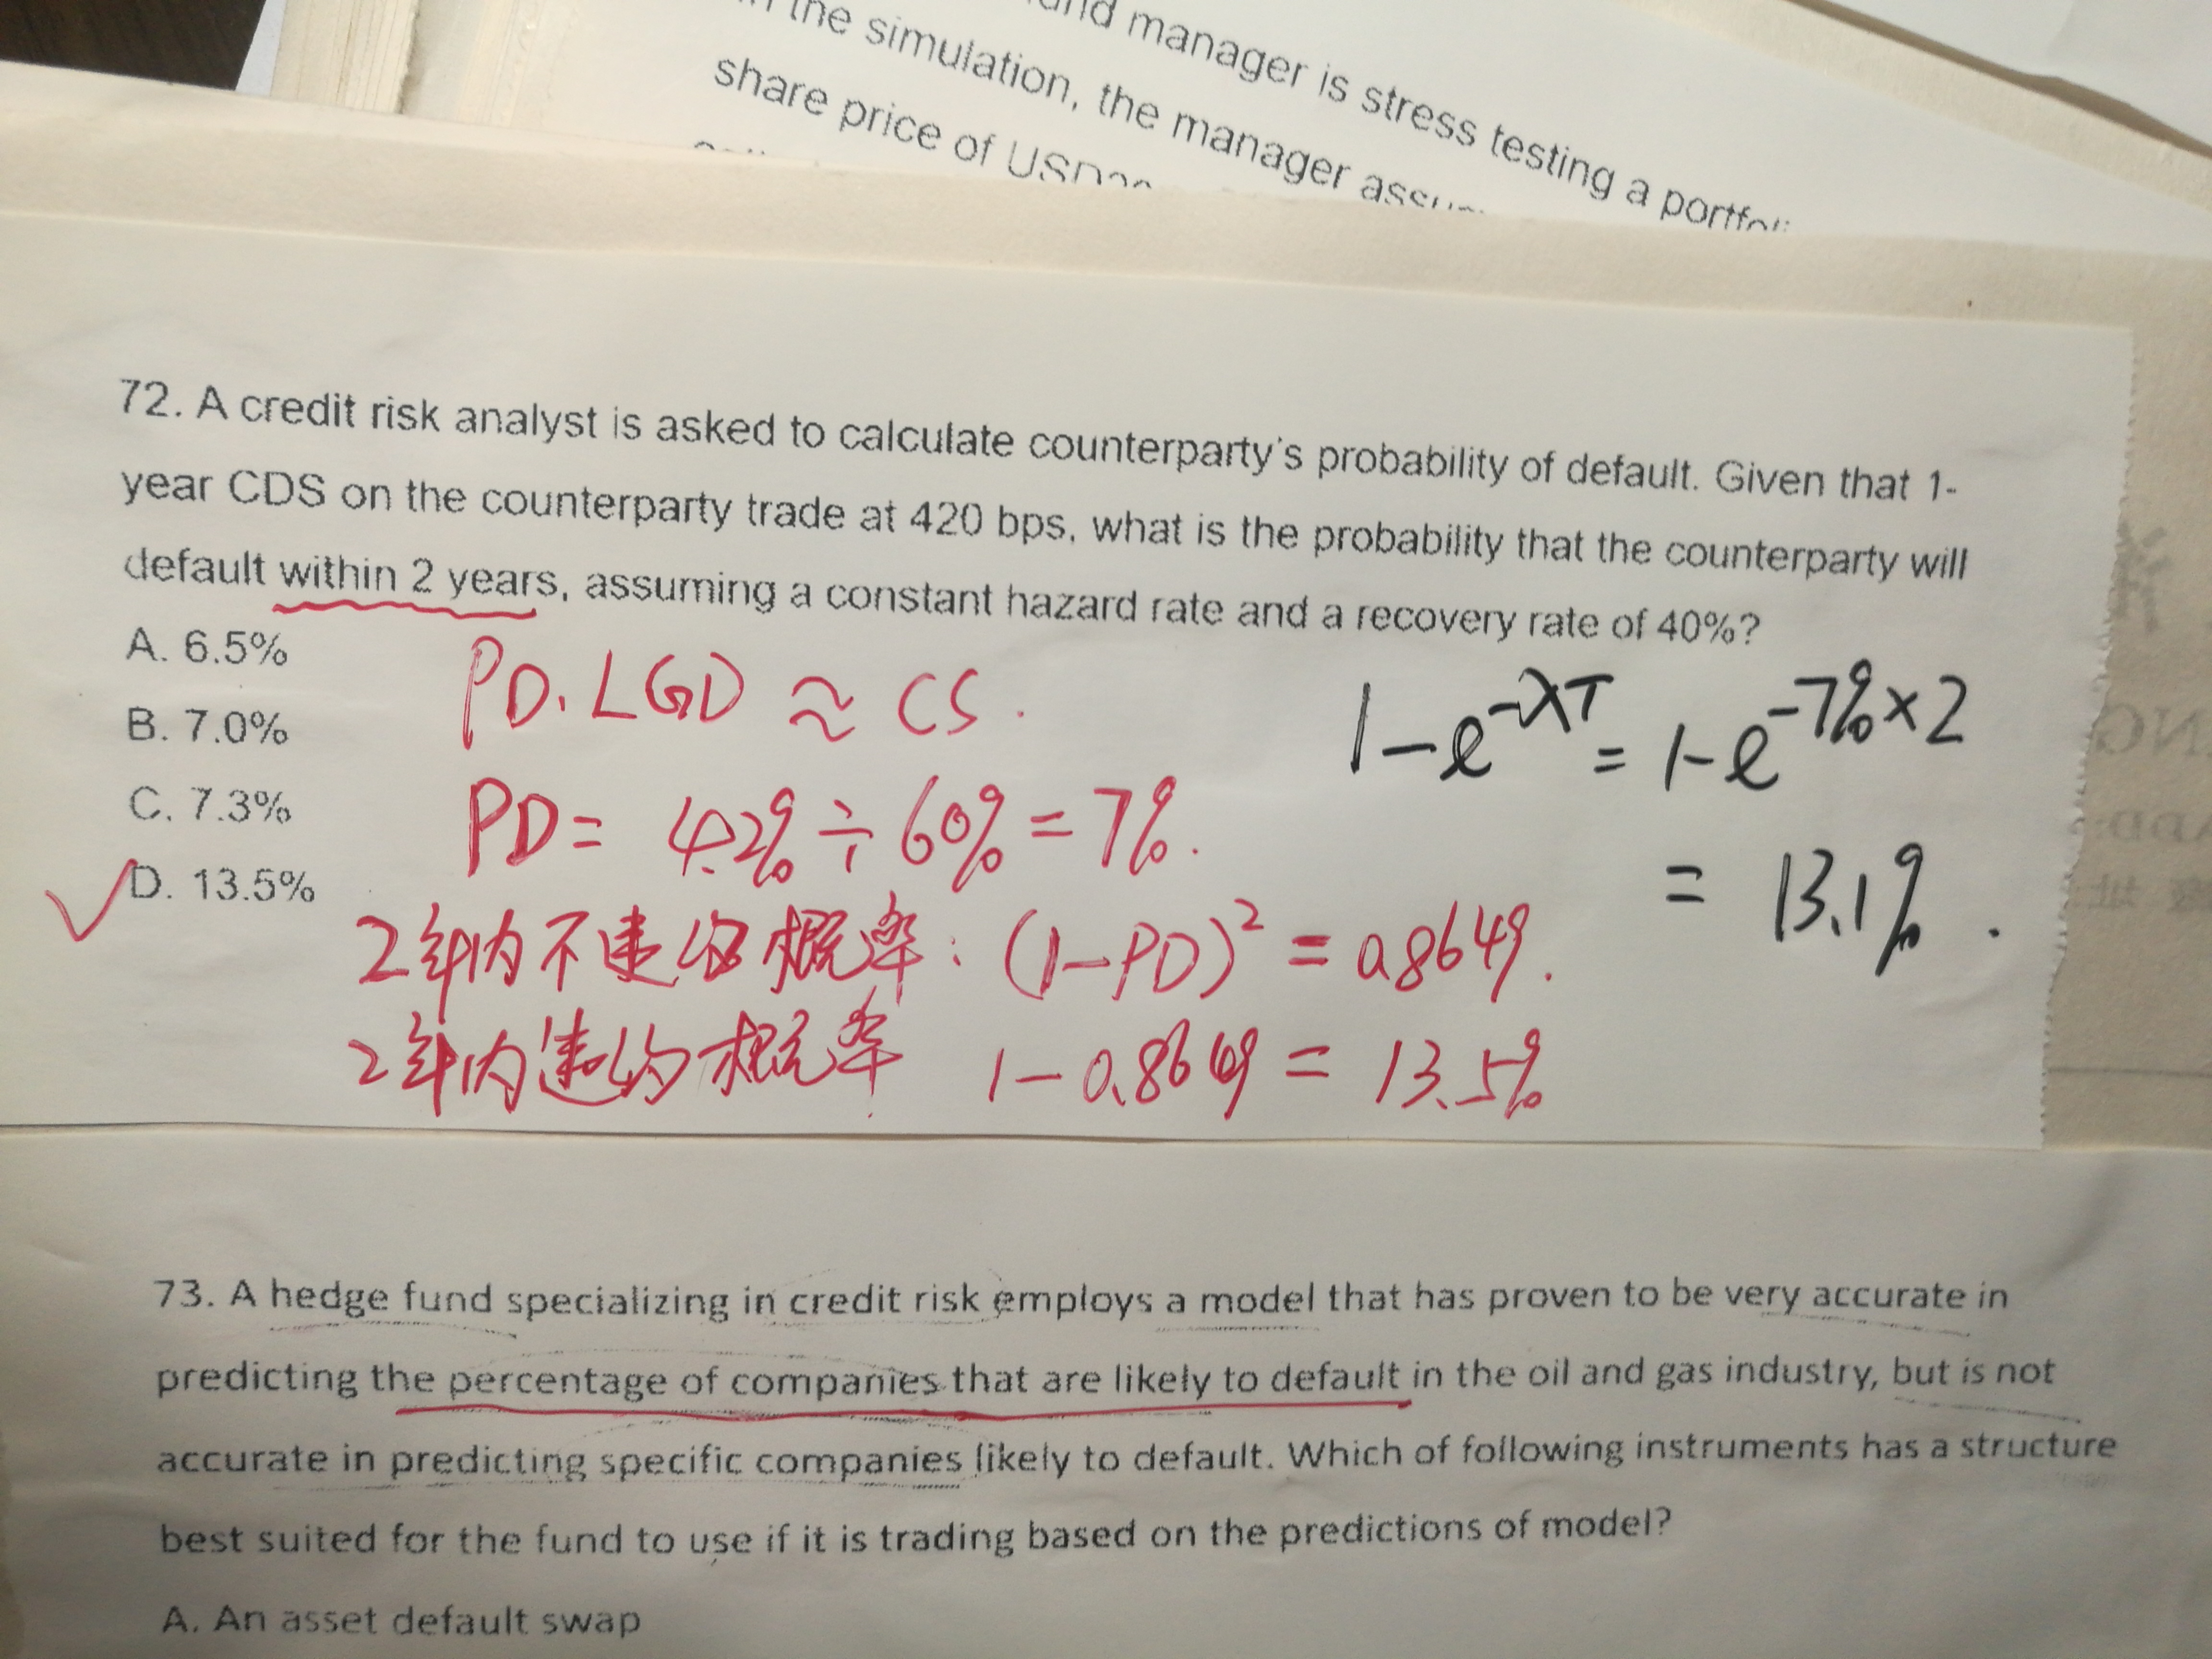 und manager is stress testing a
the simulation, the manager
share price of
72. A credit risk analyst is asked to calculate counterparty's probability of default. Given that 1-
year CDS on the counterparty trade at 420 bps, what is the probability that the counterparty will
default within 2 years, assuming a constant hazard rate and a recovery rate of 40%?
A. 6.5%
B. 7.0%
C. 7.3%
D. 13.5%
PD.LGD ≈ CS.
PD = 4.2% ÷ 60% = 7%.
2年内不违约概率: (1-PD)² = 0.8649.
2年内违约概率 1-0.8649 = 13.5%
1-e^-λT = 1-e^-7%×2
= 13.1%.
73. A hedge fund specializing in credit risk employs a model that has proven to be very accurate in
predicting the percentage of companies that are likely to default in the oil and gas industry, but is not
accurate in predicting specific companies likely to default. Which of following instruments has a structure
best suited for the fund to use if it is trading based on the predictions of model?
A. An asset default swap